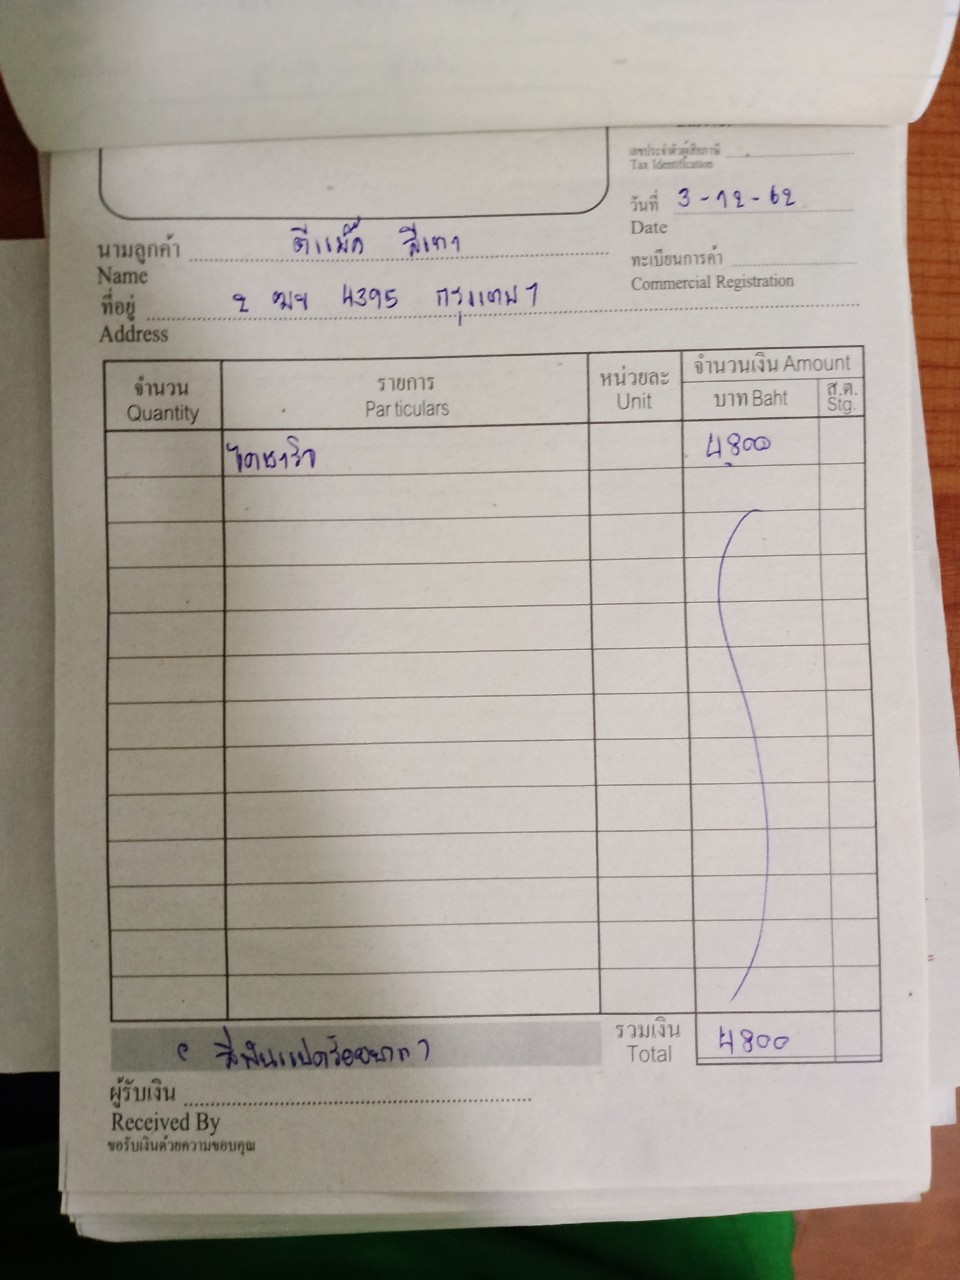 เลขประจำตัวผู้เสียภาษี
Tax Identification
วันที่ 3-12-62
Date
นามลูกค้า ดีแม็ค สีเทา
Name
ทะเบียนการค้า
Commercial Registration
ที่อยู่ 2 ฒฆ 4395 กรุงเทพฯ
Address
จำนวน รายการ หน่วยละ จำนวนเงิน Amount
Quantity Particulars Unit บาท Baht ส.ต. Stg.
ไดชาร์จ 4800
(สี่พันแปดร้อยบาท) รวมเงิน 4800
Total
ผู้รับเงิน
Received By
ขอรับเงินด้วยความขอบคุณ